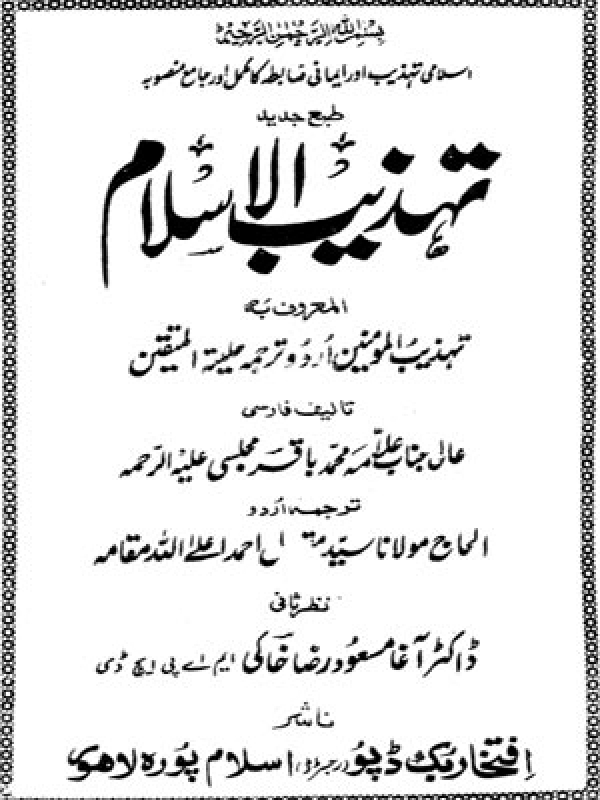 بسم اللہ الرحمن الرحیم
اسلامی تہذیب اور ایمانی ضابطہ کا مکمل اور جامع منصوبہ
طبع جدید
تہذیب الاسلام
المعروف بہ
تہذیبُ المومنین اُردو ترجمہ حلیۃ المتقین
تالیف فارسی
عالی جناب علّامہ محمد باقر مجلسی علیہ الرحمہ
ترجمہ اُردو
الحاج مولانا سیّد احمد اعلے اللہ مقامہ
نظر ثانی
ڈاکٹر آغا مسعود رضا خاکی ایم اے پی ایچ ڈی
ناشر
افتخار بک ڈپو (رجسٹرڈ) اسلام پورہ لاہور